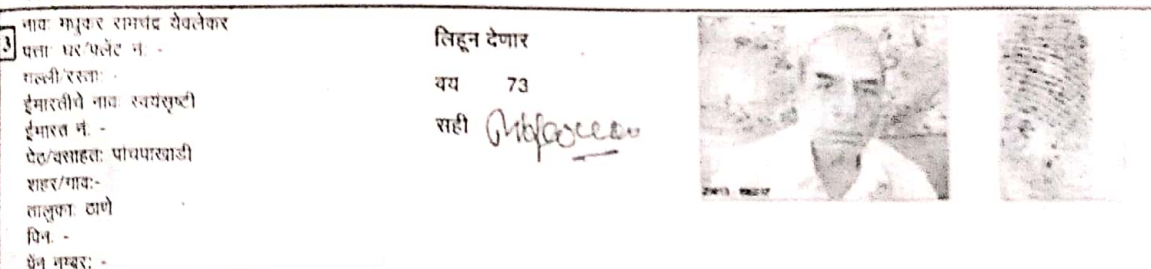 3
नावः मधुकर रामचंद्र येवलेकर
पत्ताः घर/फ्लॅट नं: -
गल्ली/रस्ताः -
ईमारतीचे नावः स्वयंसृष्टी
ईमारत नं: -
पेठ/वसाहतः पांचपाखाडी
शहर/गावः-
तालुकाः ठाणे
पिनः -
पॅन नम्बरः -
लिहून देणार
वय 73
सही